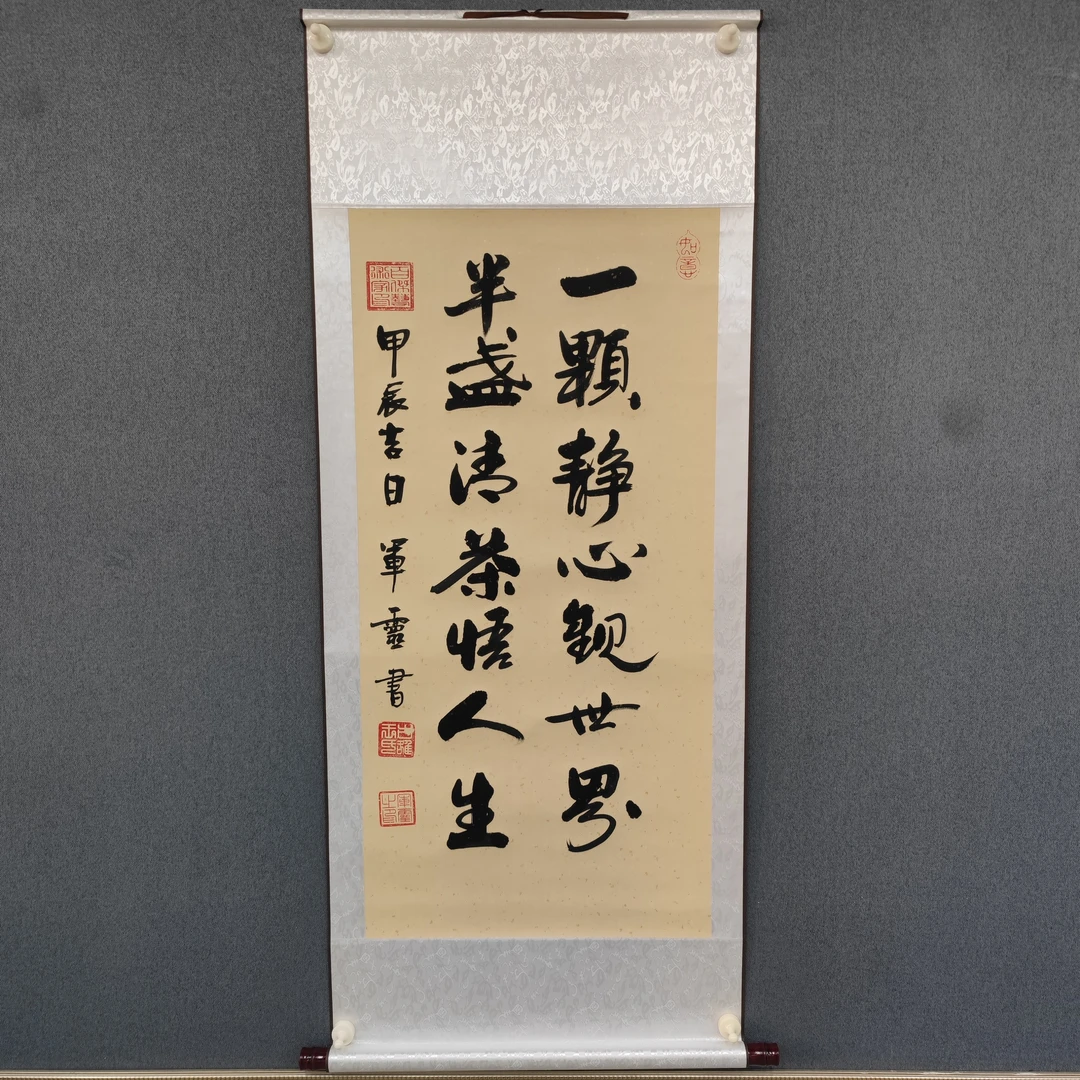 一顆靜心觀世界
半盏清茶悟人生
甲辰吉日 軍靈書